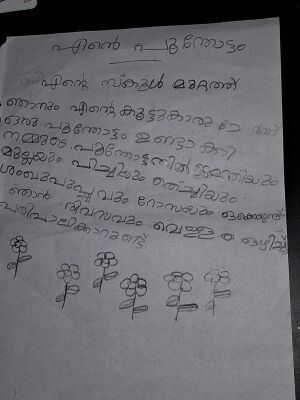 എന്റെ പൂന്തോട്ടം
എന്റെ സ്കൂൾ മുറ്റത്ത്
ഞാനും എന്റെ കൂട്ടുകാരും
ഒരു പൂന്തോട്ടം ഉണ്ടാക്കി
നമ്മുടെ പൂന്തോട്ടത്തിൽ ജമന്തിയും
മുല്ലയും പിച്ചിയും തെച്ചിയും
ശംഖുപുഷ്പവും റോസയും ഒക്കെയുണ്ട്
ഞാൻ ദിവസവും വെള്ളം ഒഴിച്ച്
പരിപാലിക്കാറുണ്ട്